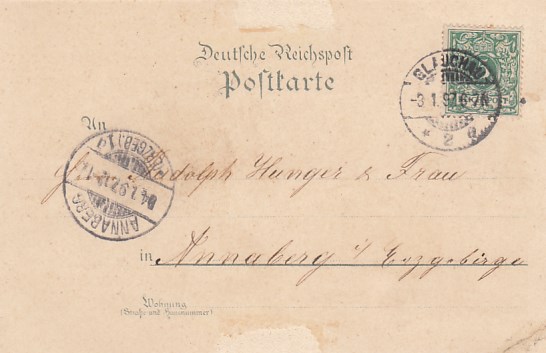 Deutsche Reichspost
Postkarte
GLAUCHAU
-3.1.97.6-7N
* 2
An
Rudolph Hunger & Frau
ANNABERG
(ERZGEB.) 1
in Annaberg i/ Erzgebirge
Wohnung
(Straße und Hausnummer)